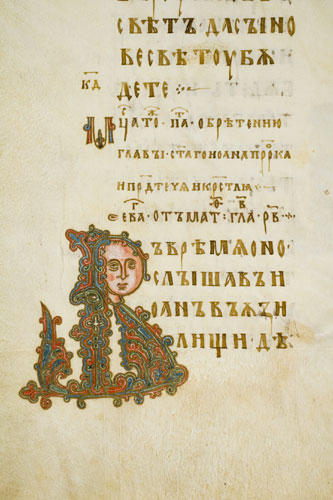 свѣтъ да сꙑно
ве свѣтоу бѫ
дете
к҃д
мⷭ҇ца то · па · обрѣтению
главꙑ ст҃аго иоана прⷪ҇ка
и прⷣтечѧ и крⷭ҇тлꙗ
еⷡ҇ва · отъ маⷴ · гла · р҃в ·
въ врѣмѧ оно ·
слꙑшавъ и
оанъ въ ѫзи
лищи дѣ